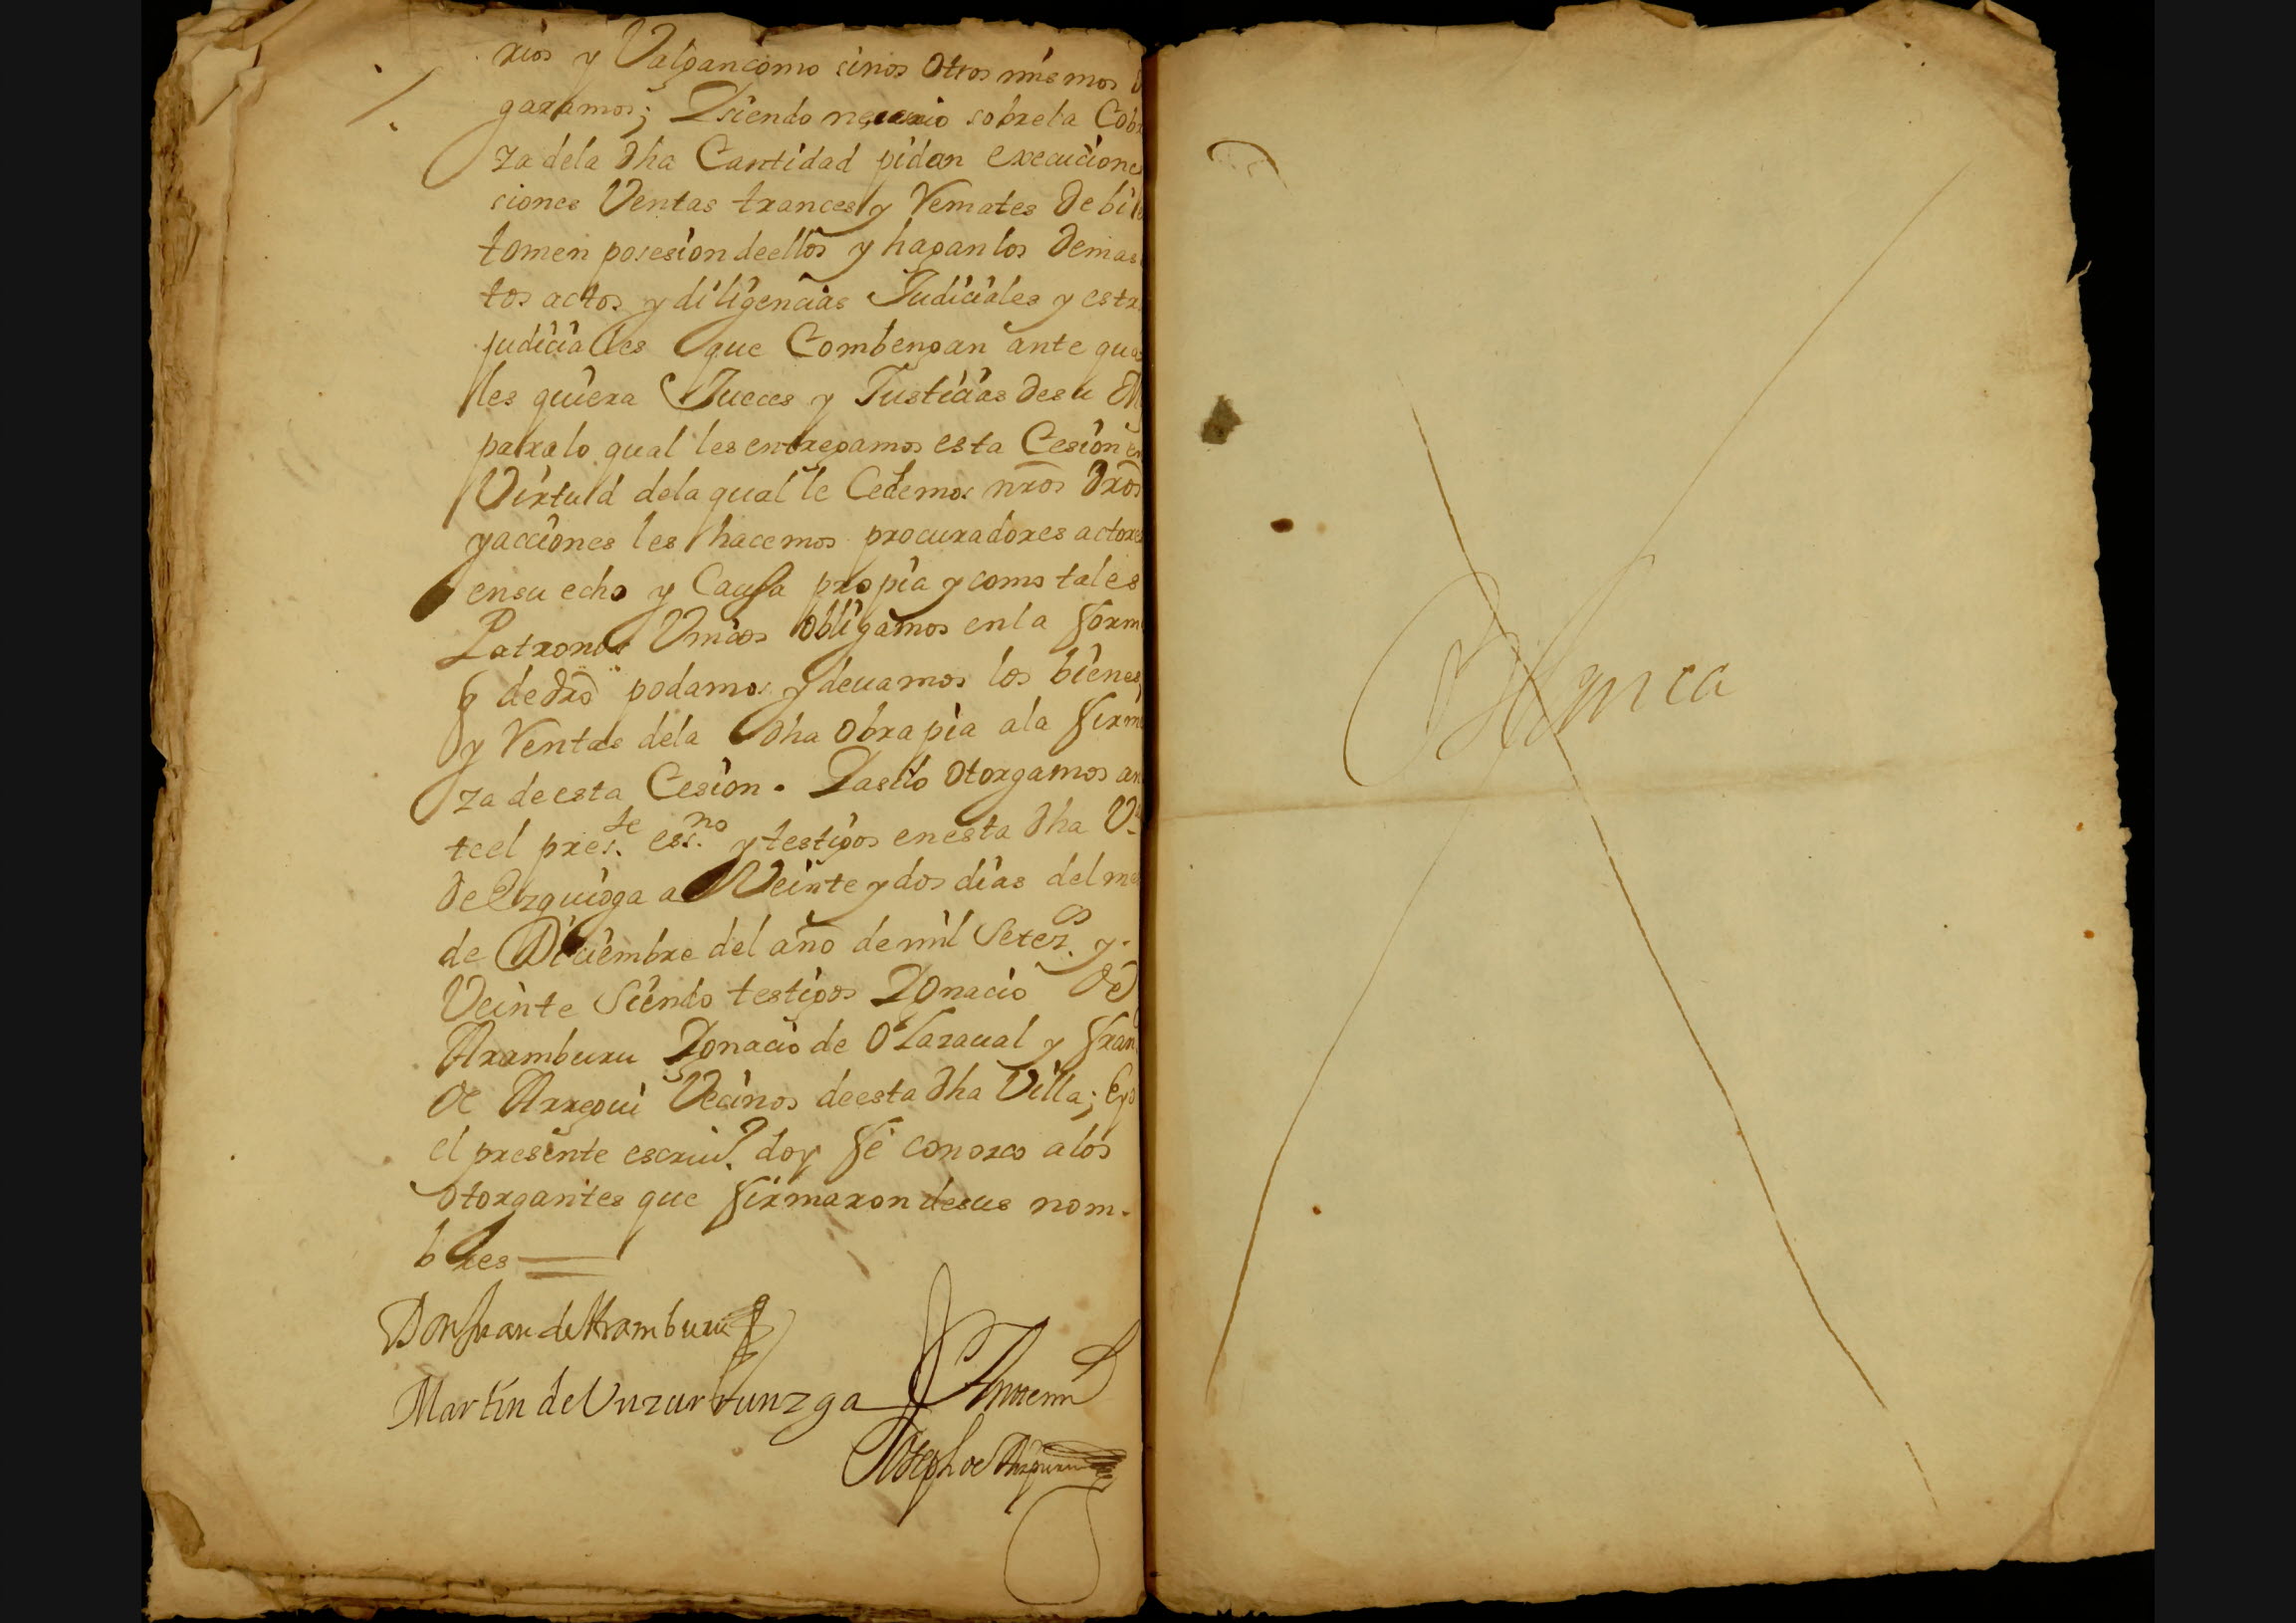 rios y Valgan como si nos Otros mismos
garamos; Y siendo necesario sobre la Cobr
za dela dha Cantidad pidan execucione
ciones Ventas trances y Remates de bi
tomen posesion de ellos y hagan los demas
tos actos y diligencias Judiciales y estr
judiciales que Combengan ante qua
les quiera Jueces y Justicias de su M
para lo qual les entregamos esta Cesion en
Virtud dela qual le Cedemos nros dros
y acciones les hacemos procuradores actore
en su echo y Causa propia y como tales
Patronos Unicos obligamos en la form
q de dro podamos y deuamos los bienes
y Rentas dela dha obra pia ala firm
za de esta Cesion. Y asi lo Otorgamos an
te el preste. esno. y testigos en esta dha Va
de Ezquioga a Veinte y dos dias del me
de Diciembre del año de mil Setezs. y
Veinte Siendo testigos Ygnacio de
Aramburu Ygnacio de Olazaual y fran
de Arregui Vecinos de esta dha Villa; E yo
el presente escriuo. doy fe conozco a los
otorgantes que firmaron de sus nom-
bres
Don Juan de Aramburu
Martin de Unzurrunzga Antemi
Joseph de
Blanca